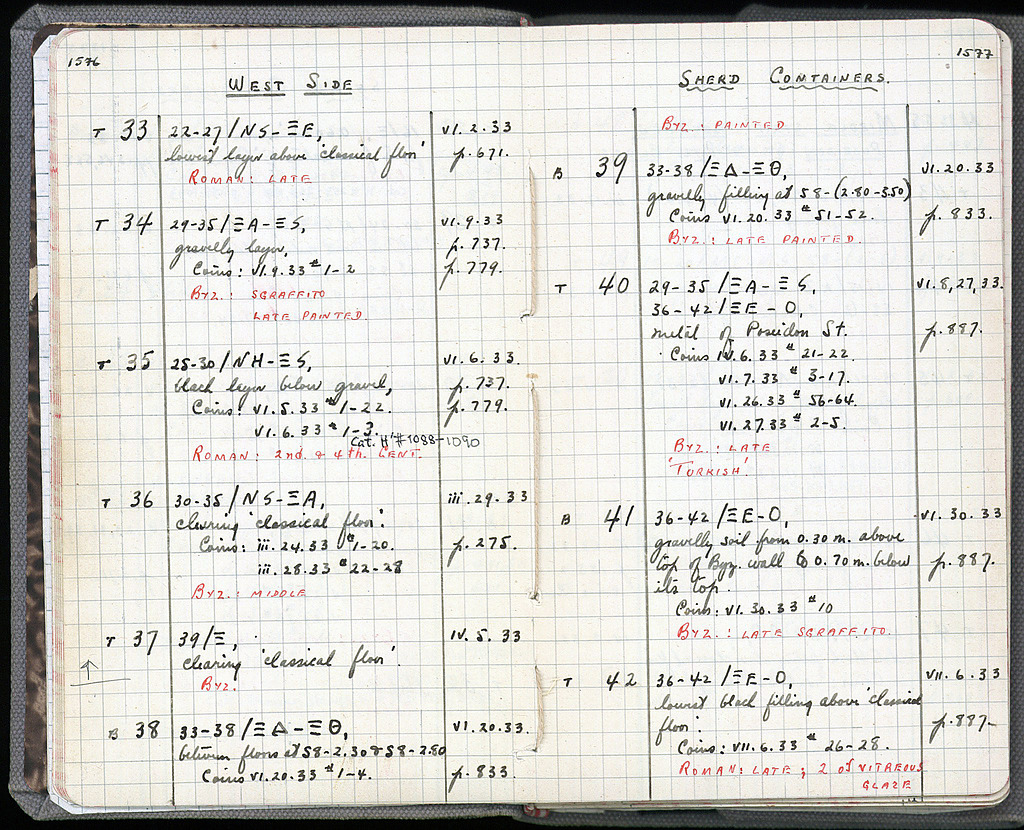 1576
WEST SIDE
T 33 22-27/NS-ΞE, VI.2.33
lowest layer above 'classical floor' p.671.
ROMAN: LATE
T 34 29-35/ΞA-ΞS, VI.9.33
gravelly layer, p.737.
Coins: VI.9.33 #1-2 p.779.
BYZ.: SGRAFFITO
LATE PAINTED.
T 35 25-30/NH-ΞS, VI.6.33.
black layer below gravel, p.737.
Coins: VI.5.33 #1-22. p.779.
VI.6.33 #1-3.
Cat. H' #1088-1090
ROMAN: 2nd. & 4th. CENT.
T 36 30-35/NS-ΞA, iii.29.33
clearing 'classical floor'.
Coins: iii.24.33 #1-20. p.275.
iii.28.33 #22-28
BYZ.: MIDDLE
T 37 39/Ξ, IV.5.33
clearing 'classical floor'.
BYZ.
↑
B 38 33-38/ΞΔ-ΞΘ, VI.20.33.
between floors at 58-2.30 & 58-2.80
Coins VI.20.33 #1-4. p.833.
1577
SHERD CONTAINERS.
BYZ.: PAINTED
B 39 33-38/ΞΔ-ΞΘ, VI.20.33
gravelly filling at 58-(2.80-3.50)
Coins VI.20.33 #51-52. p.833.
BYZ.: LATE PAINTED.
T 40 29-35/ΞA-ΞS, VI.8,27,33.
36-42/ΞE-O,
metal of Poseidon St. p.887.
Coins IV.6.33 #21-22.
VI.7.33 #3-17.
VI.26.33 #56-64.
VI.27.33 #2-5.
BYZ.: LATE
'TURKISH'
B 41 36-42/ΞE-O, VI.30.33
gravelly soil from 0.30 m. above
top of Byz. wall to 0.70 m. below p.887.
its top.
Coins: VI.30.33 #10
BYZ.: LATE SGRAFFITO.
T 42 36-42/ΞE-O, VII.6.33
lowest black filling above 'classical
floor'. p.887-
Coins: VII.6.33 #26-28.
ROMAN: LATE; 2 of VITREOUS
GLAZE